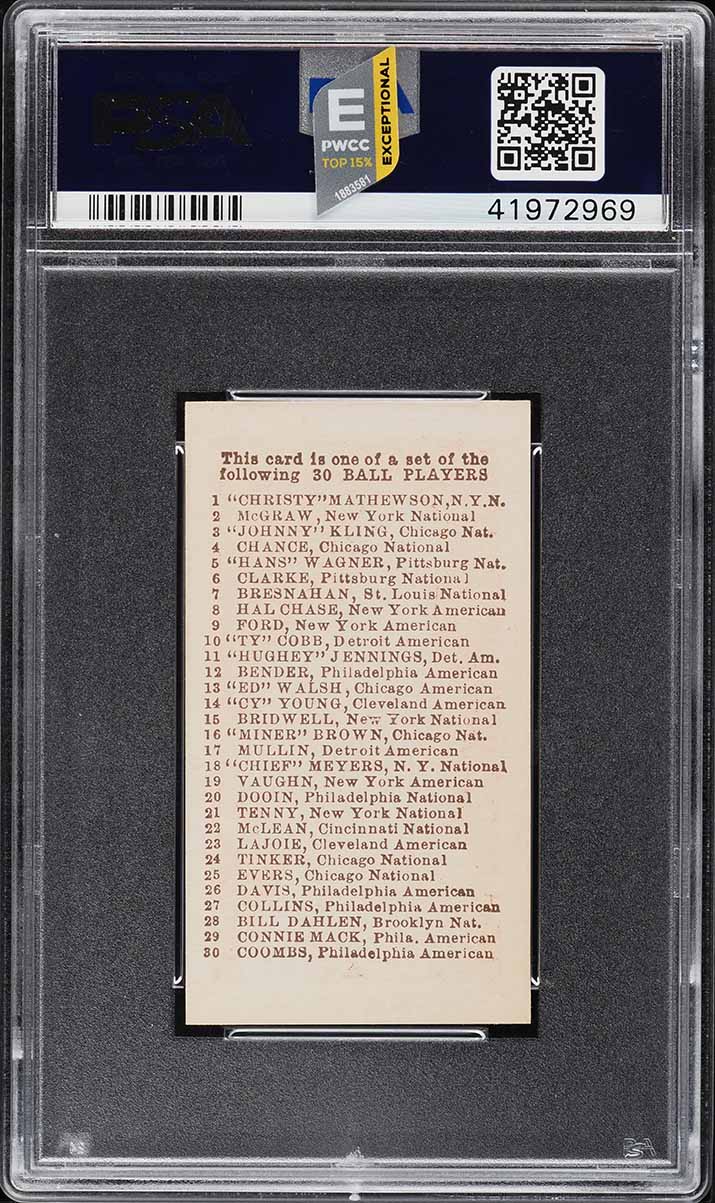 PSA
E
PWCC
TOP 15%
EXCEPTIONAL
1883581
41972969
This card is one of a set of the
following 30 BALL PLAYERS
1 "CHRISTY" MATHEWSON, N.Y.N.
2 McGRAW, New York National
3 "JOHNNY" KLING, Chicago Nat.
4 CHANCE, Chicago National
5 "HANS" WAGNER, Pittsburg Nat.
6 CLARKE, Pittsburg National
7 BRESNAHAN, St. Louis National
8 HAL CHASE, New York American
9 FORD, New York American
10 "TY" COBB, Detroit American
11 "HUGHEY" JENNINGS, Det. Am.
12 BENDER, Philadelphia American
13 "ED" WALSH, Chicago American
14 "CY" YOUNG, Cleveland American
15 BRIDWELL, New York National
16 "MINER" BROWN, Chicago Nat.
17 MULLIN, Detroit American
18 "CHIEF" MEYERS, N. Y. National
19 VAUGHN, New York American
20 DOOIN, Philadelphia National
21 TENNY, New York National
22 McLEAN, Cincinnati National
23 LAJOIE, Cleveland American
24 TINKER, Chicago National
25 EVERS, Chicago National
26 DAVIS, Philadelphia American
27 COLLINS, Philadelphia American
28 BILL DAHLEN, Brooklyn Nat.
29 CONNIE MACK, Phila. American
30 COOMBS, Philadelphia American
PSA